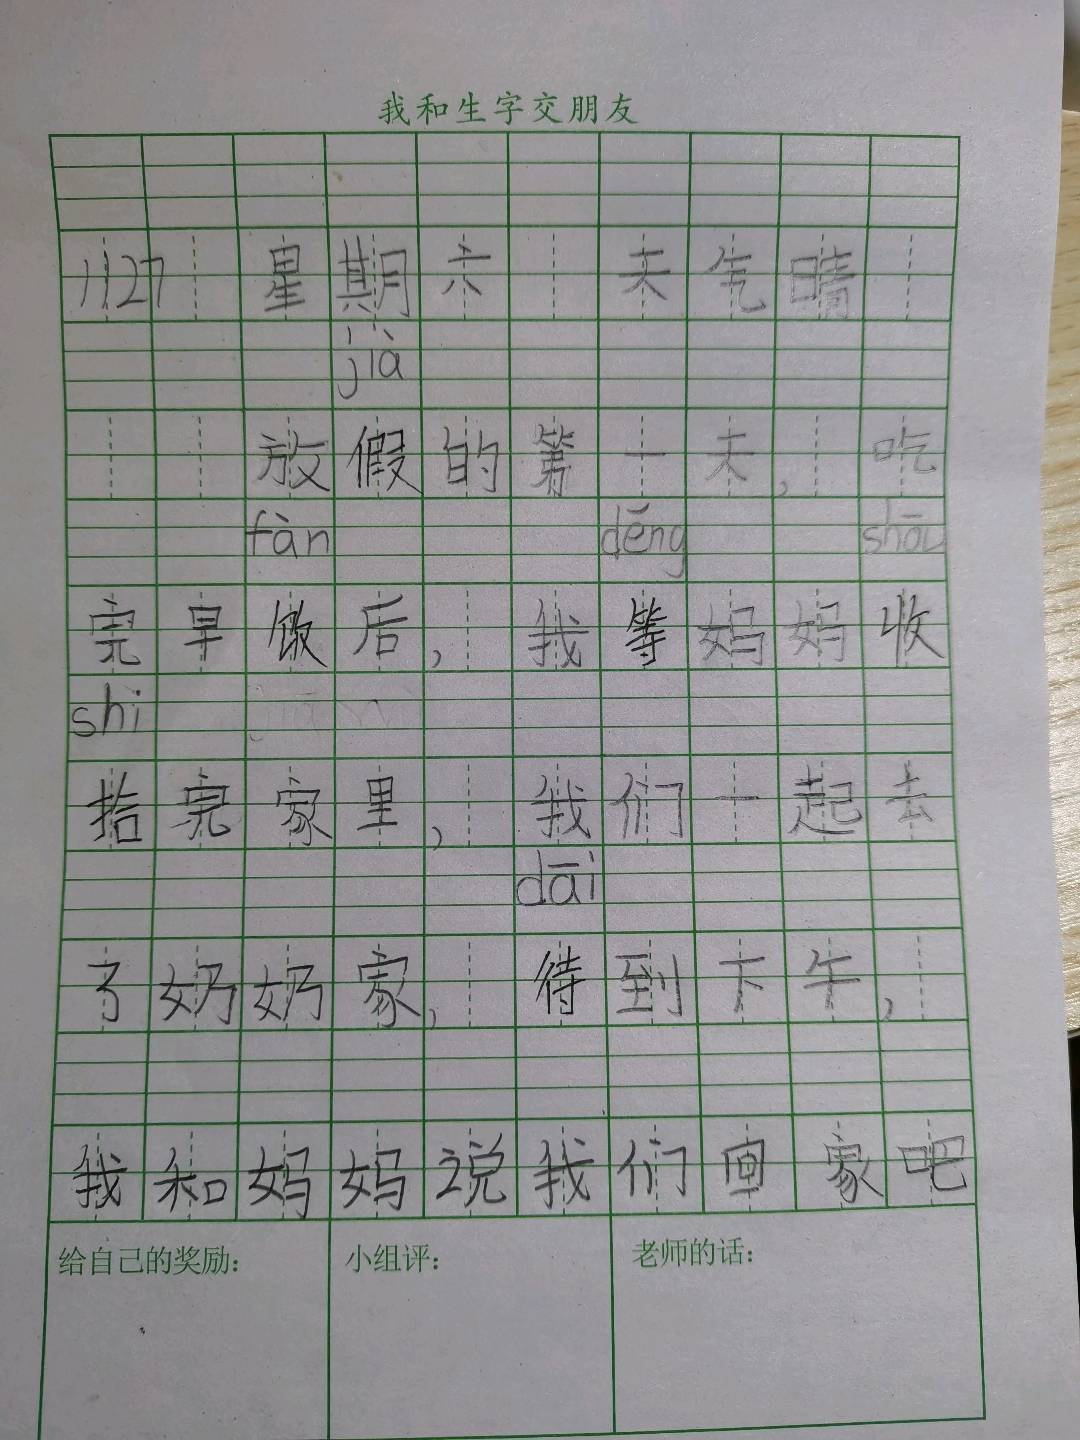 我和生字交朋友
1127 星期六 天气晴
jià
放假的第一天,吃
fàn děng shōu
完早饭后,我等妈妈收
shi
拾完家里,我们一起去
dāi
了奶奶家,待到下午,
我和妈妈说我们回家吧
给自己的奖励: 小组评: 老师的话: